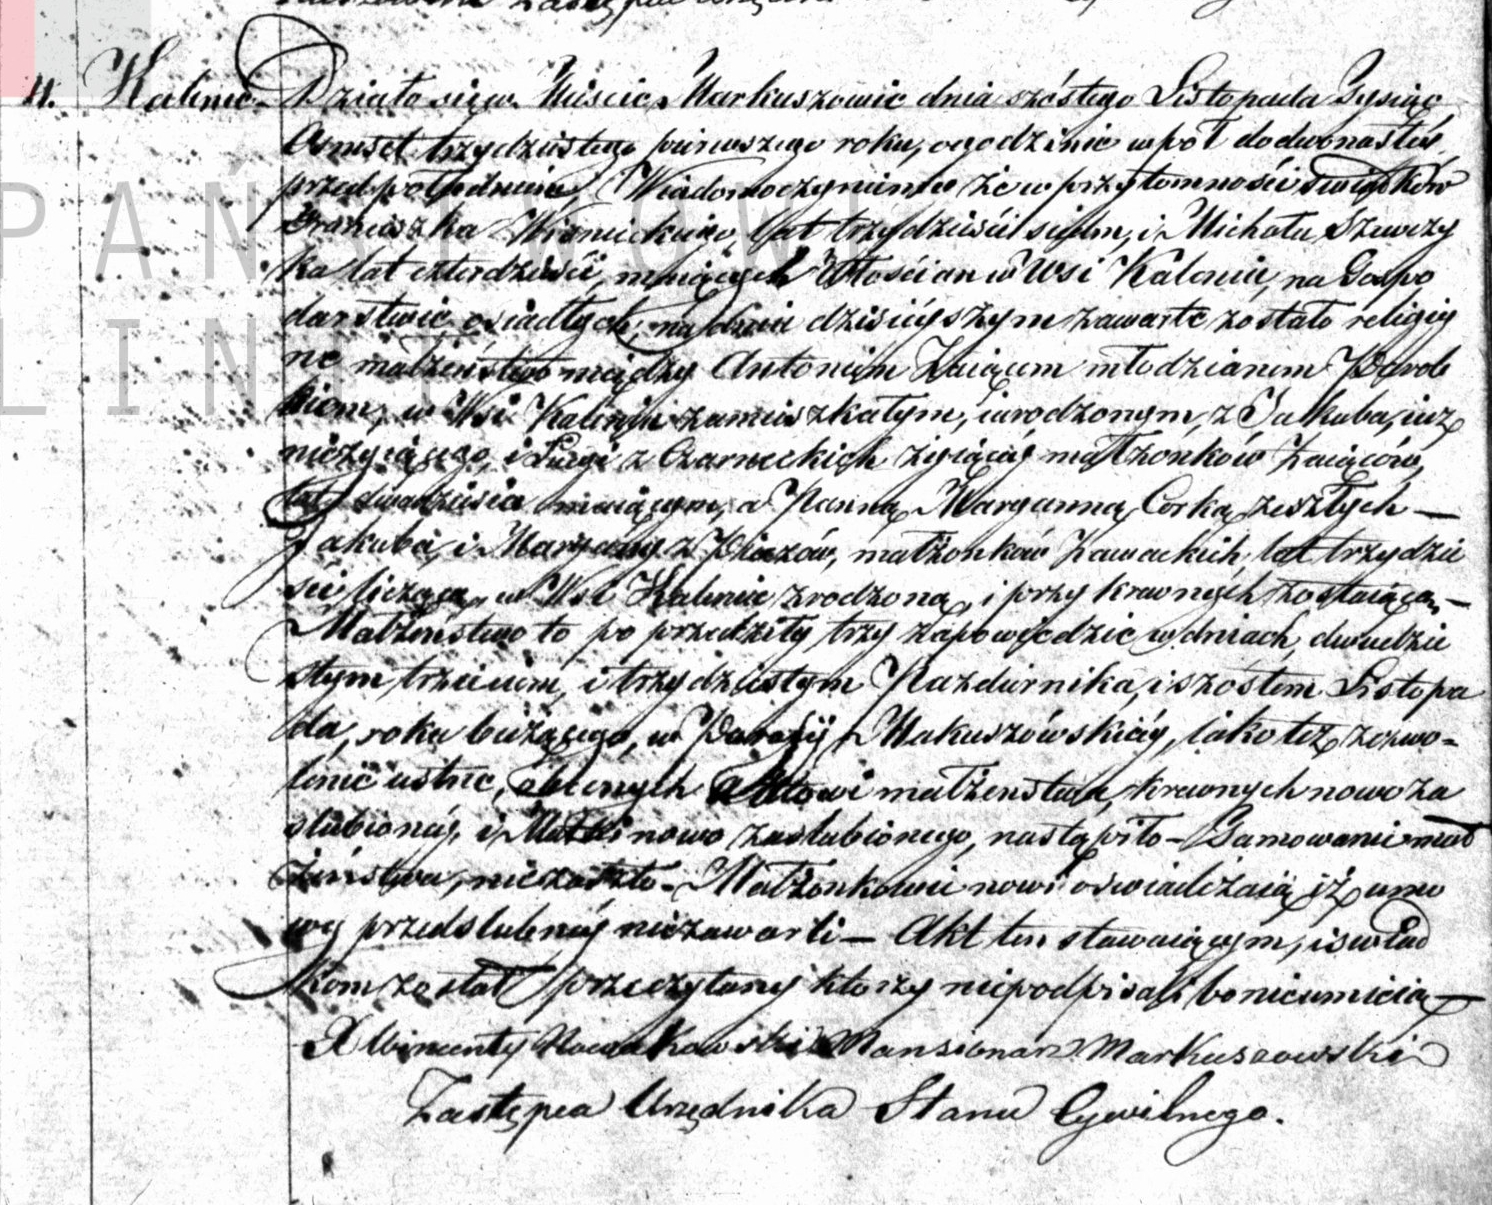 11. Kalinie. Działo się w Mieście Markuszowie dnia szóstego Listopada Tysiąc
Osmset trzydziestego pierwszego roku, o godzinie wpół do dwonastéj
przed południem, Wiadomo czyniemy że w przytomności świadków
Franciszka Wronieckiego, lat trzydzieści siedm, i Michała Szewczy
ka lat czterdzieści, maiących Włościan w Wsi Kalenie, na Gospo
darstwie osiadłych, na dniu dzisieyszym zawarte zostało religiy
ne małżeństwo między Antonim Zaiącem młodzianem Parob
kiem, w Wsi Kalenie zamieszkałym, i urodzonym, z Jakuba, iuż
nieżyiącego, i z Czarneckich żyiącéy małżonków Zaiąców,
lat dwadzieścia maiącym, a Panną Maryanną Corką zeszłych —
Jakuba, i Maryanny z małżonków Zawackich, lat trzydzie
ści liczącą, w Wsi Kalenie zrodzoną, i przy krewnych zostaiącą, —
Małżeństwo to poprzedziły trzy zapowiedzie w dniach, dwudzie
stym trzecim, i trzydziestym Pazdiernika, i szóstem Listopa
da, roku bieżącego, w Parafij Makuszówskiéy, iako też zezwo-
lenie ustne, obecnych Aktowi małżeństwa, krewnych nowo za
slubionéy, i Matki nowo zaslubionego, nastąpiło — Tamowanie mał
żeństwa, nie zaszło. Małżonkowie nowi oswiadczaią iż umo
wy przedslubnéy niezawarli — Akt ten stawaiącym, i swiad
kom został przeczytany ktorzy niepodpisali bo nieumieią —
X Wincenty Nowakowski Mansionarz Markuszowski
Zastępca Urzędnika Stanu Cywilnego.